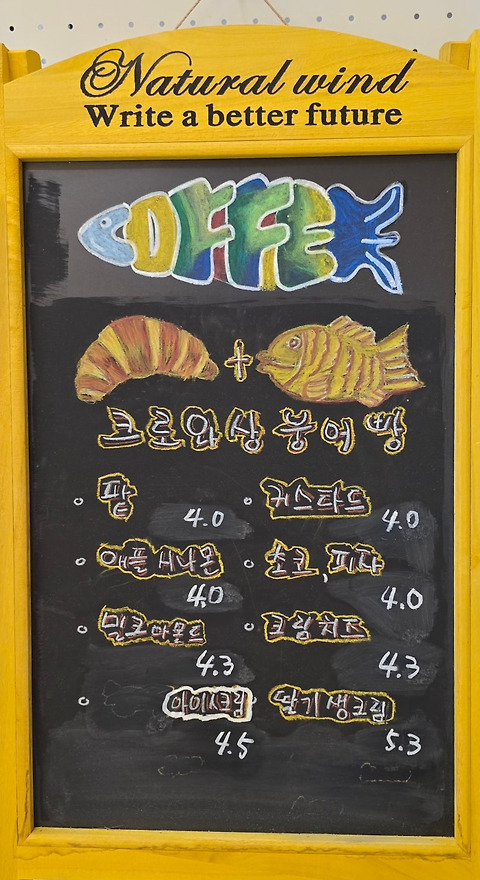 Natural wind
Write a better future
COFFEE
+
크로와상 붕어빵
팥 4.0
커스타드 4.0
애플시나몬 4.0
초코, 피자 4.0
밀크아몬드 4.3
크림치즈 4.3
아이스크림 4.5
딸기생크림 5.3